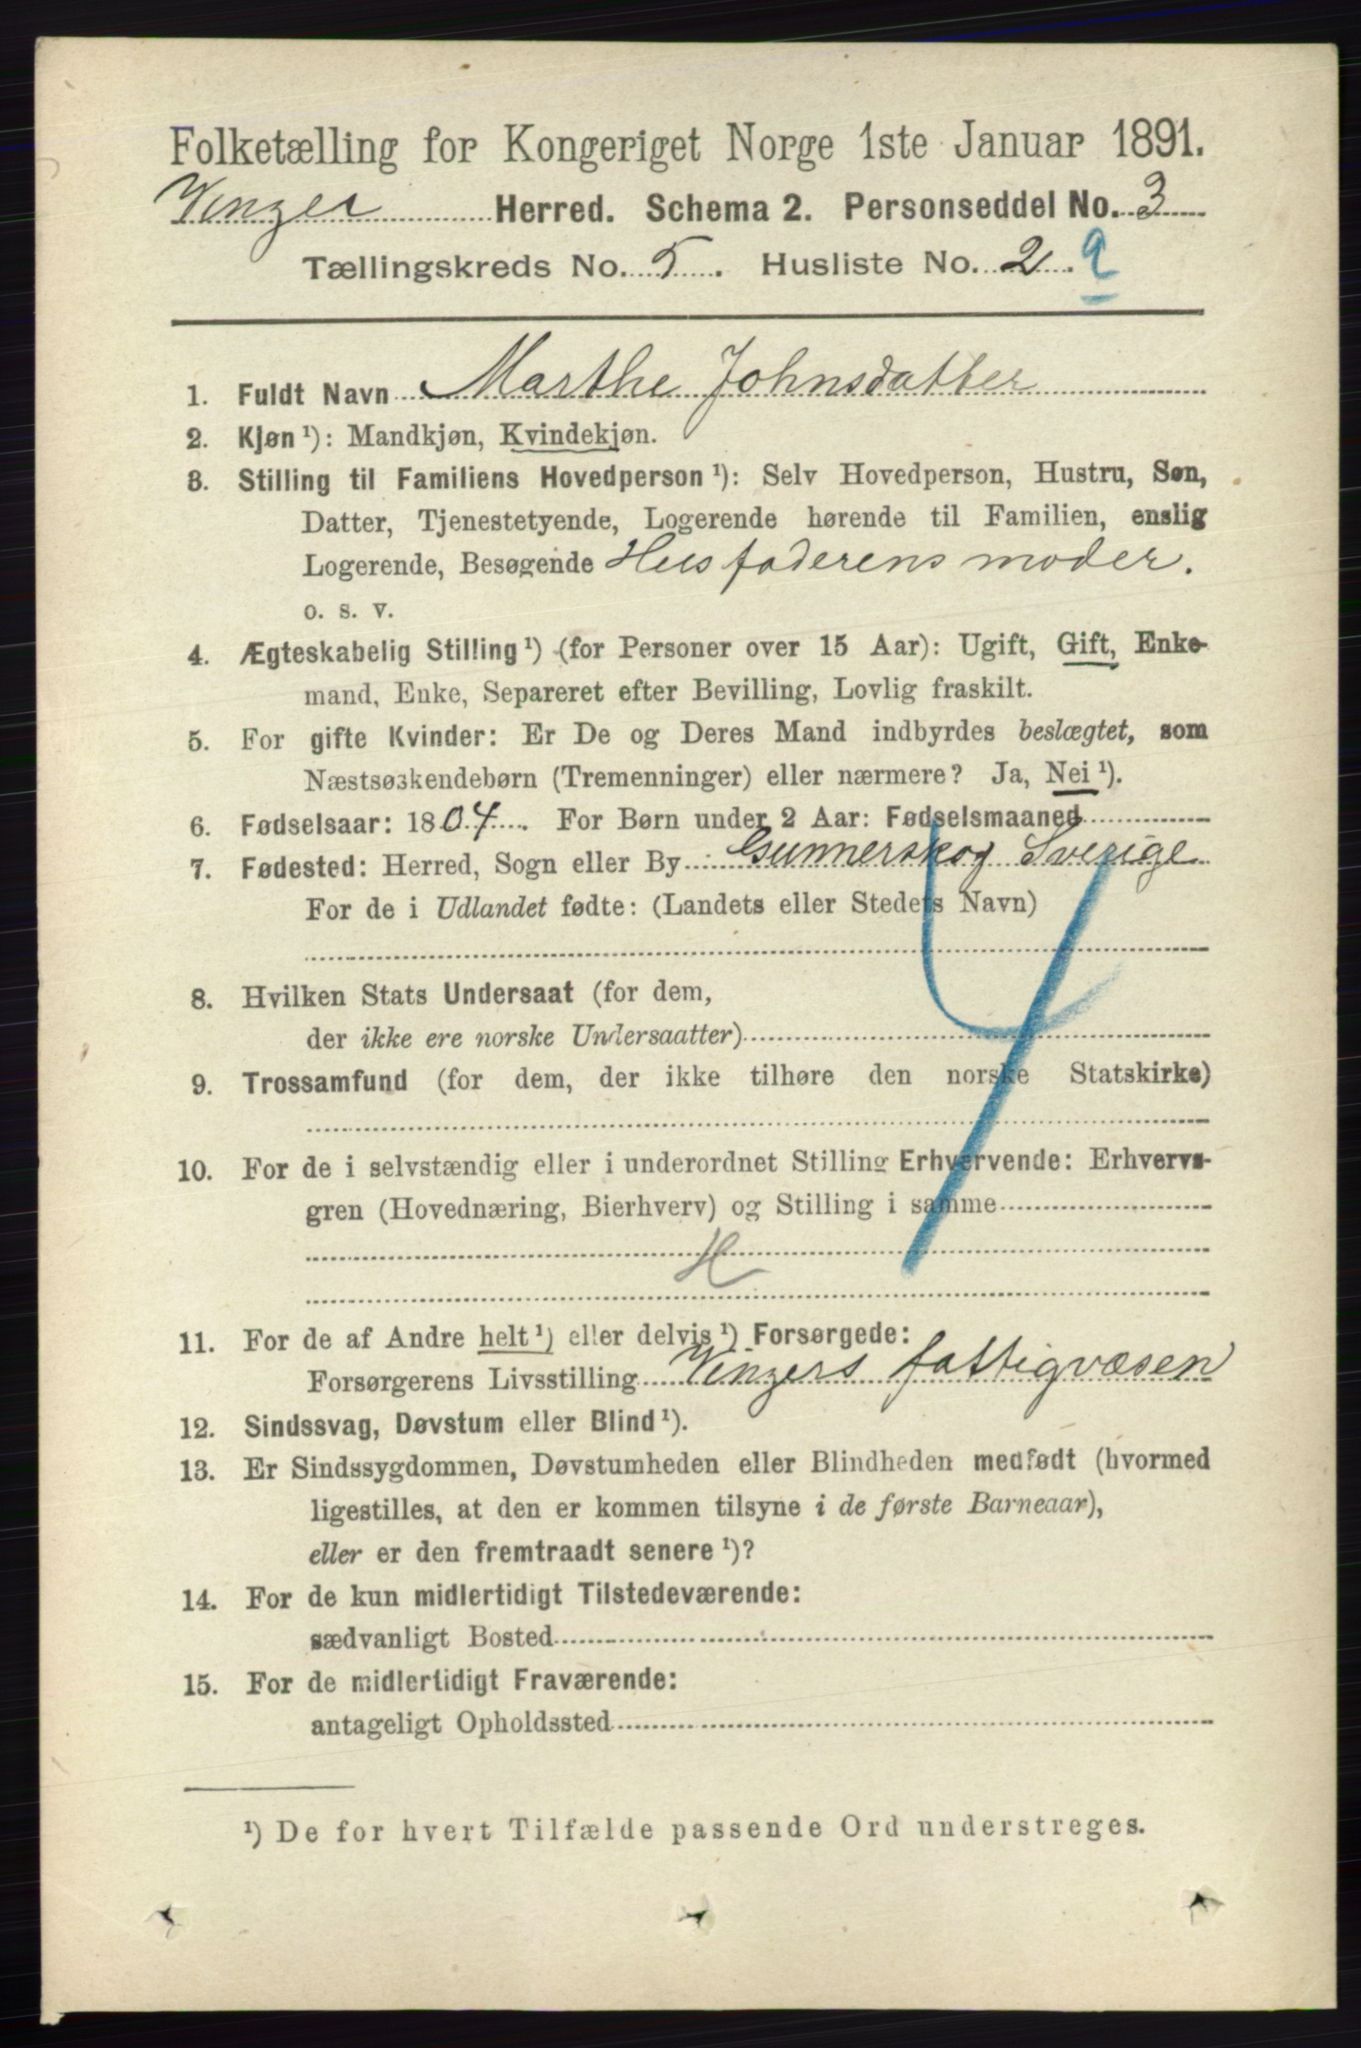 Folketælling for Kongeriget Norge 1ste Januar 1891.
Vinger Herred. Schema 2. Personseddel No. 3
Tællingskreds No. 5. Husliste No. 2. a
1. Fuldt Navn Marthe Johnsdatter
2. Kjøn ¹): Mandkjøn, Kvindekjøn.
3. Stilling til Familiens Hovedperson ¹): Selv Hovedperson, Hustru, Søn,
Datter, Tjenestetyende, Logerende hørende til Familien, enslig
Logerende, Besøgende Husfaderens moder.
o. s. v.
4. Ægteskabelig Stilling ¹) (for Personer over 15 Aar): Ugift, Gift, Enke-
mand, Enke, Separeret efter Bevilling, Lovlig fraskilt.
5. For gifte Kvinder: Er De og Deres Mand indbyrdes beslægtet, som
Næstsøskendebørn (Tremenninger) eller nærmere? Ja, Nei ¹).
6. Fødselsaar: 1804. For Børn under 2 Aar: Fødselsmaaned
7. Fødested: Herred, Sogn eller By Gunnerskog Sverige
For de i Udlandet fødte: (Landets eller Stedets Navn)
8. Hvilken Stats Undersaat (for dem,
der ikke ere norske Undersaatter)
9. Trossamfund (for dem, der ikke tilhøre den norske Statskirke)
10. For de i selvstændig eller i underordnet Stilling Erhvervende: Erhvervs-
gren (Hovednæring, Bierhverv) og Stilling i samme
H
11. For de af Andre helt ¹) eller delvis ¹) Forsørgede:
Forsørgerens Livsstilling Vingers fattigvæsen
12. Sindssvag, Døvstum eller Blind ¹).
13. Er Sindssygdommen, Døvstumheden eller Blindheden medfødt (hvormed
ligestilles, at den er kommen tilsyne i de første Barneaar),
eller er den fremtraadt senere ¹)?
14. For de kun midlertidigt Tilstedeværende:
sædvanligt Bosted
15. For de midlertidigt Fraværende:
antageligt Opholdssted
¹) De for hvert Tilfælde passende Ord understreges.